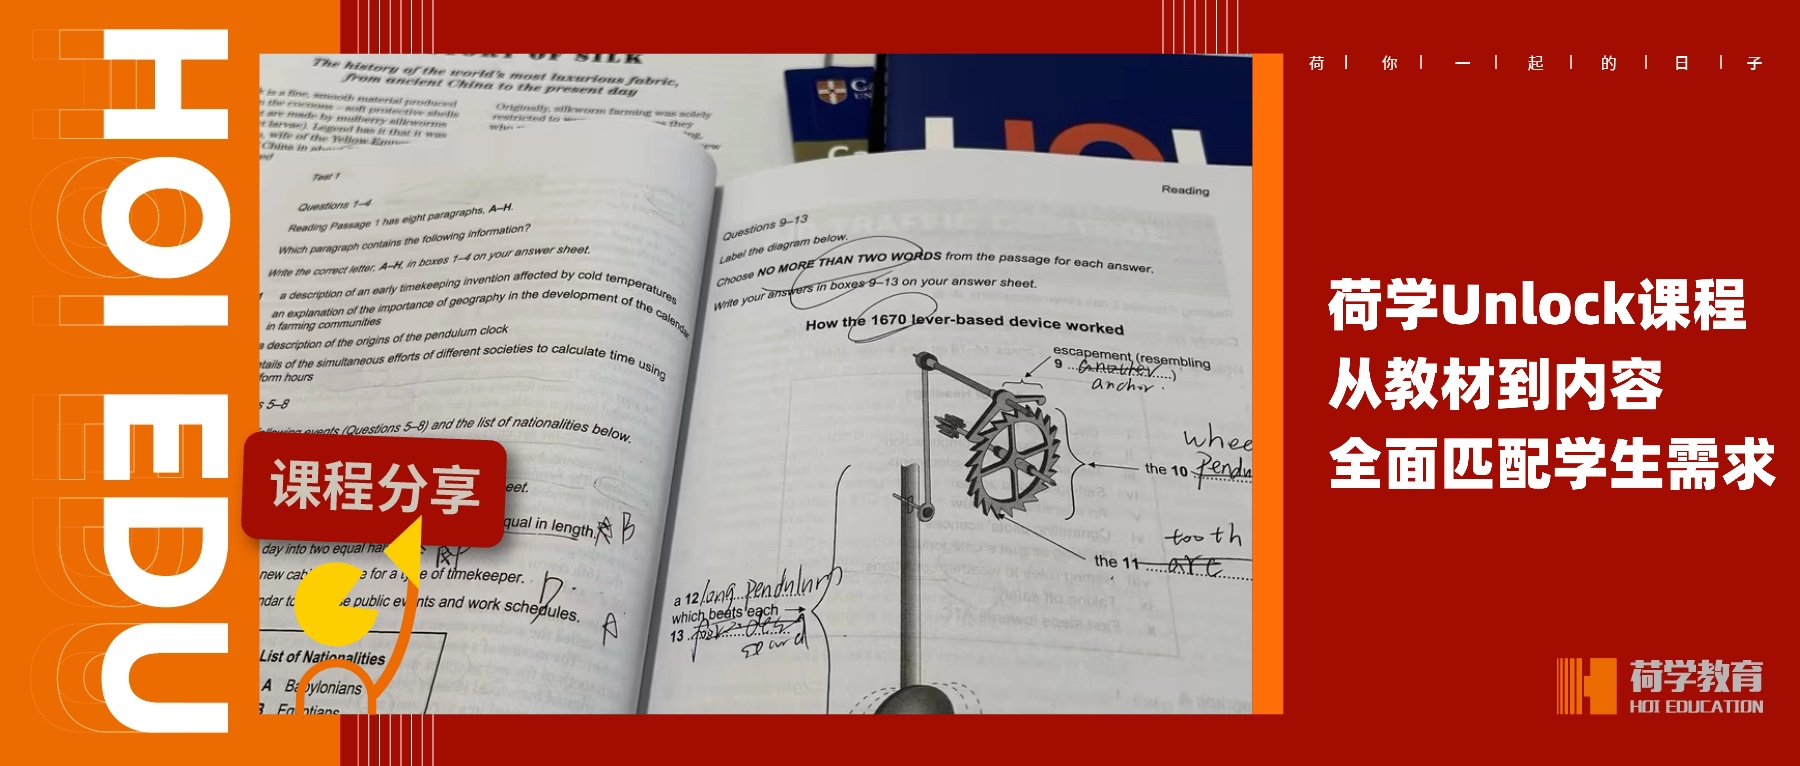 HOI EDU
荷 你 一 起 的 日 子
荷学Unlock课程
从教材到内容
全面匹配学生需求
荷学教育
HOI EDUCATION
课程分享
OF SILK
The history of the world's most luxurious fabric,
from ancient China to the present day
is a fine, smooth material produced
the cocoons – soft protective shells
are made by mulberry silkworms
larvae). Legend has it that it was
wife of the Yellow
China in
Originally, silkworm farming was solely
restricted to
they
Test 1
Questions 1–4
Reading Passage 1 has eight paragraphs, A–H.
Which paragraph contains the following information?
Write the correct letter, A–H, in boxes 1–4 on your answer sheet.
a description of an early timekeeping invention affected by cold temperatures
an explanation of the importance of geography in the development of the calendar
in farming communities
description of the origins of the pendulum clock
of the simultaneous efforts of different societies to calculate time using
hours
5–8
events (Questions 5–8) and the list of nationalities below.
equal in length. B
day into two equal
new for a of timekeeper. D.
public events and work schedules. A
List of Nationalities
A Babylonians
Reading
Questions 9–13
Label the diagram below.
Choose NO MORE THAN TWO WORDS from the passage for each answer.
Write your answers in boxes 9–13 on your answer sheet.
How the 1670 lever-based device worked
escapement (resembling
9 another )
anchor.
the 10 Pendu
whee
tooth
the 11 are
a 12 long pendulum
which beats each
13